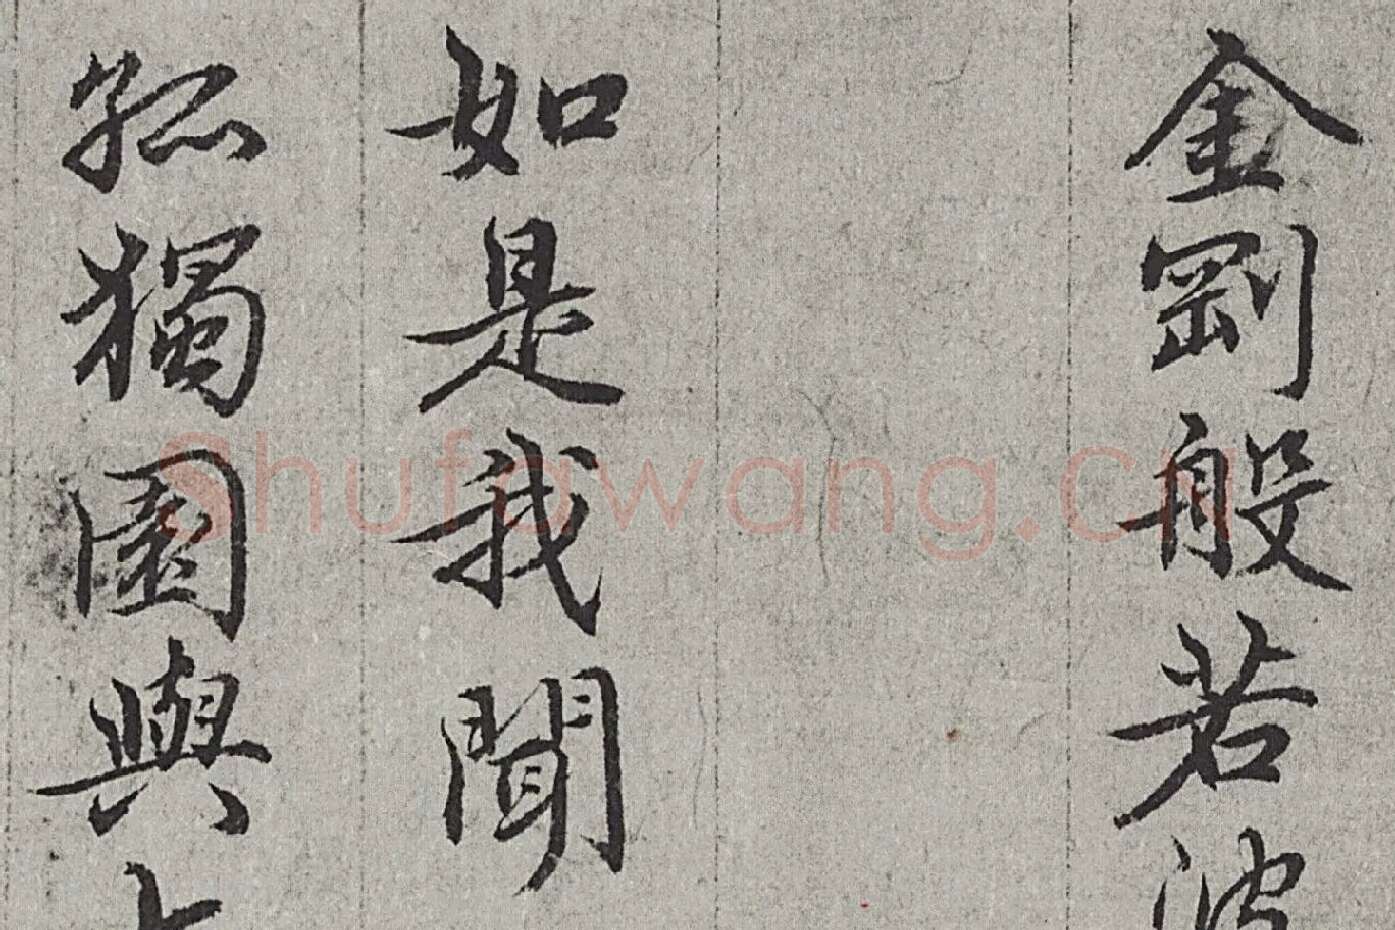 金剛般若波
如是我聞
孤獨園與
Shufawang.cn